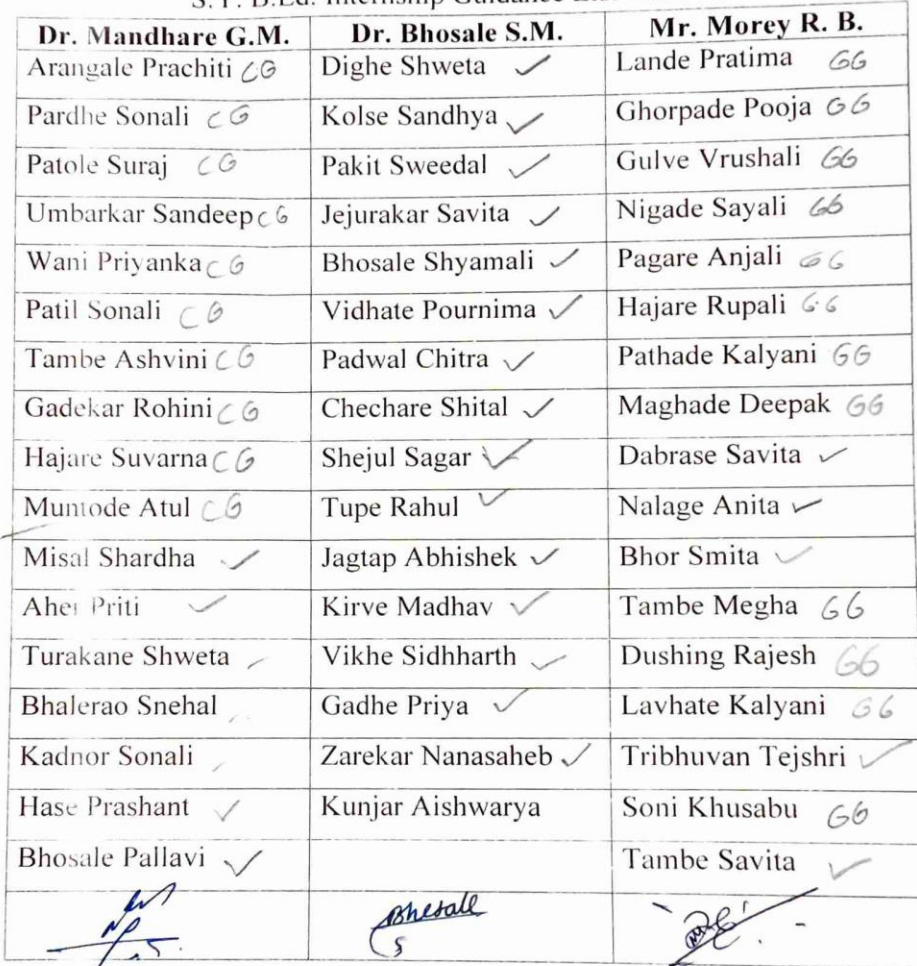 S.Y. B.Ed. Internship Guidance
Dr. Mandhare G.M. Dr. Bhosale S.M. Mr. Morey R. B.
Arangale Prachiti CG Dighe Shweta ✓ Lande Pratima GG
Pardhe Sonali CG Kolse Sandhya ✓ Ghorpade Pooja GG
Patole Suraj CG Pakit Sweedal ✓ Gulve Vrushali GG
Umbarkar Sandeep CG Jejurakar Savita ✓ Nigade Sayali GG
Wani Priyanka CG Bhosale Shyamali ✓ Pagare Anjali GG
Patil Sonali CG Vidhate Pournima ✓ Hajare Rupali G.G
Tambe Ashvini CG Padwal Chitra ✓ Pathade Kalyani GG
Gadekar Rohini CG Chechare Shital ✓ Maghade Deepak GG
Hajare Suvarna CG Shejul Sagar ✓ Dabrase Savita ✓
Muntode Atul CG Tupe Rahul ✓ Nalage Anita ✓
Misal Shardha ✓ Jagtap Abhishek ✓ Bhor Smita ✓
Aher Priti ✓ Kirve Madhav ✓ Tambe Megha GG
Turakane Shweta ✓ Vikhe Sidhharth ✓ Dushing Rajesh GG
Bhalerao Snehal ✓ Gadhe Priya ✓ Lavhate Kalyani GG
Kadnor Sonali ✓ Zarekar Nanasaheb ✓ Tribhuvan Tejshri ✓
Hase Prashant ✓ Kunjar Aishwarya Soni Khusabu GG
Bhosale Pallavi ✓ Tambe Savita ✓
Bhosale